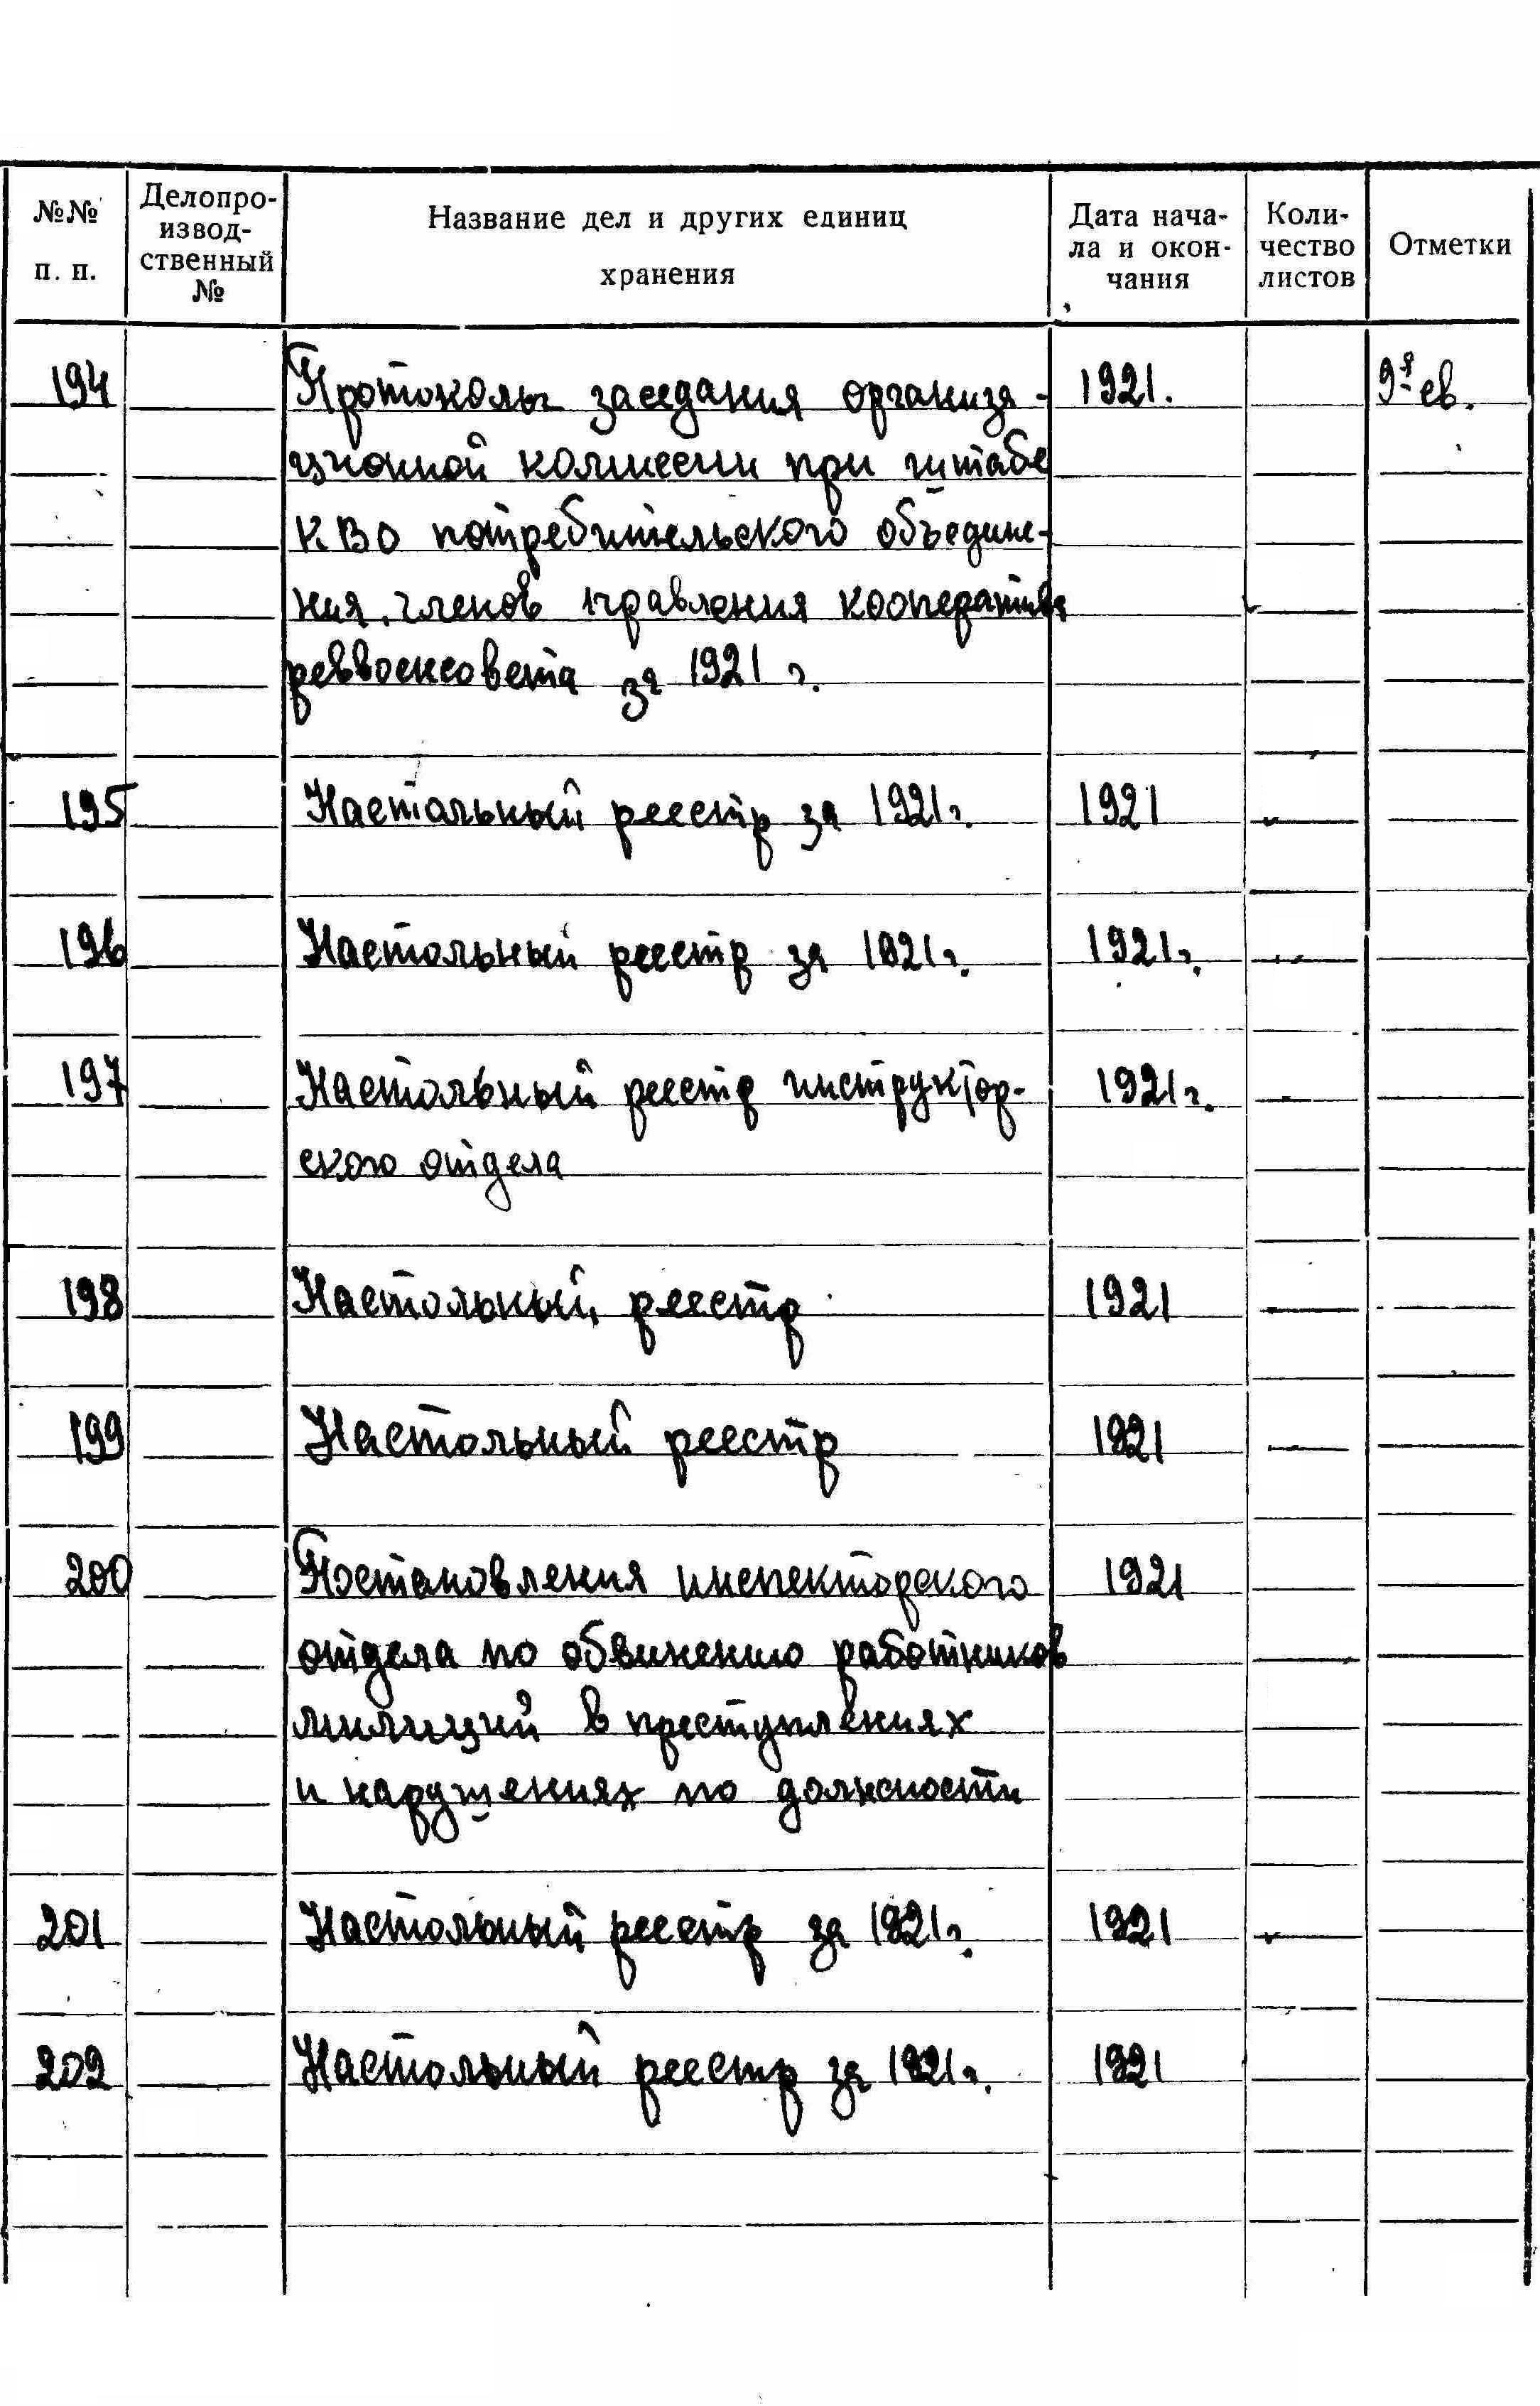 №№ п. п.
Делопро-
извод-
ственный
№
Название дел и других единиц
хранения
Дата нача-
ла и окон-
чания
Коли-
чество
листов
Отметки
194 Протоколы заседания организа- 1921.
ционной комиссии при штабе
КВО потребительского объедине-
ния, членов правления кооператива
реввоенсовета за 1921 г.
195 Настольный реестр за 1921г. 1921
196 Настольный реестр за 1921г. 1921г.
197 Настольный реестр инструктор- 1921г.
ского отдела
198 Настольный реестр 1921
199 Настольный реестр 1921
200 Постановления инспекторского 1921
отдела по обвинению работников
милиций в преступлениях
и нарушениях по должности
201 Настольный реестр за 1921г. 1921
202 Настольный реестр за 1921г. 1921